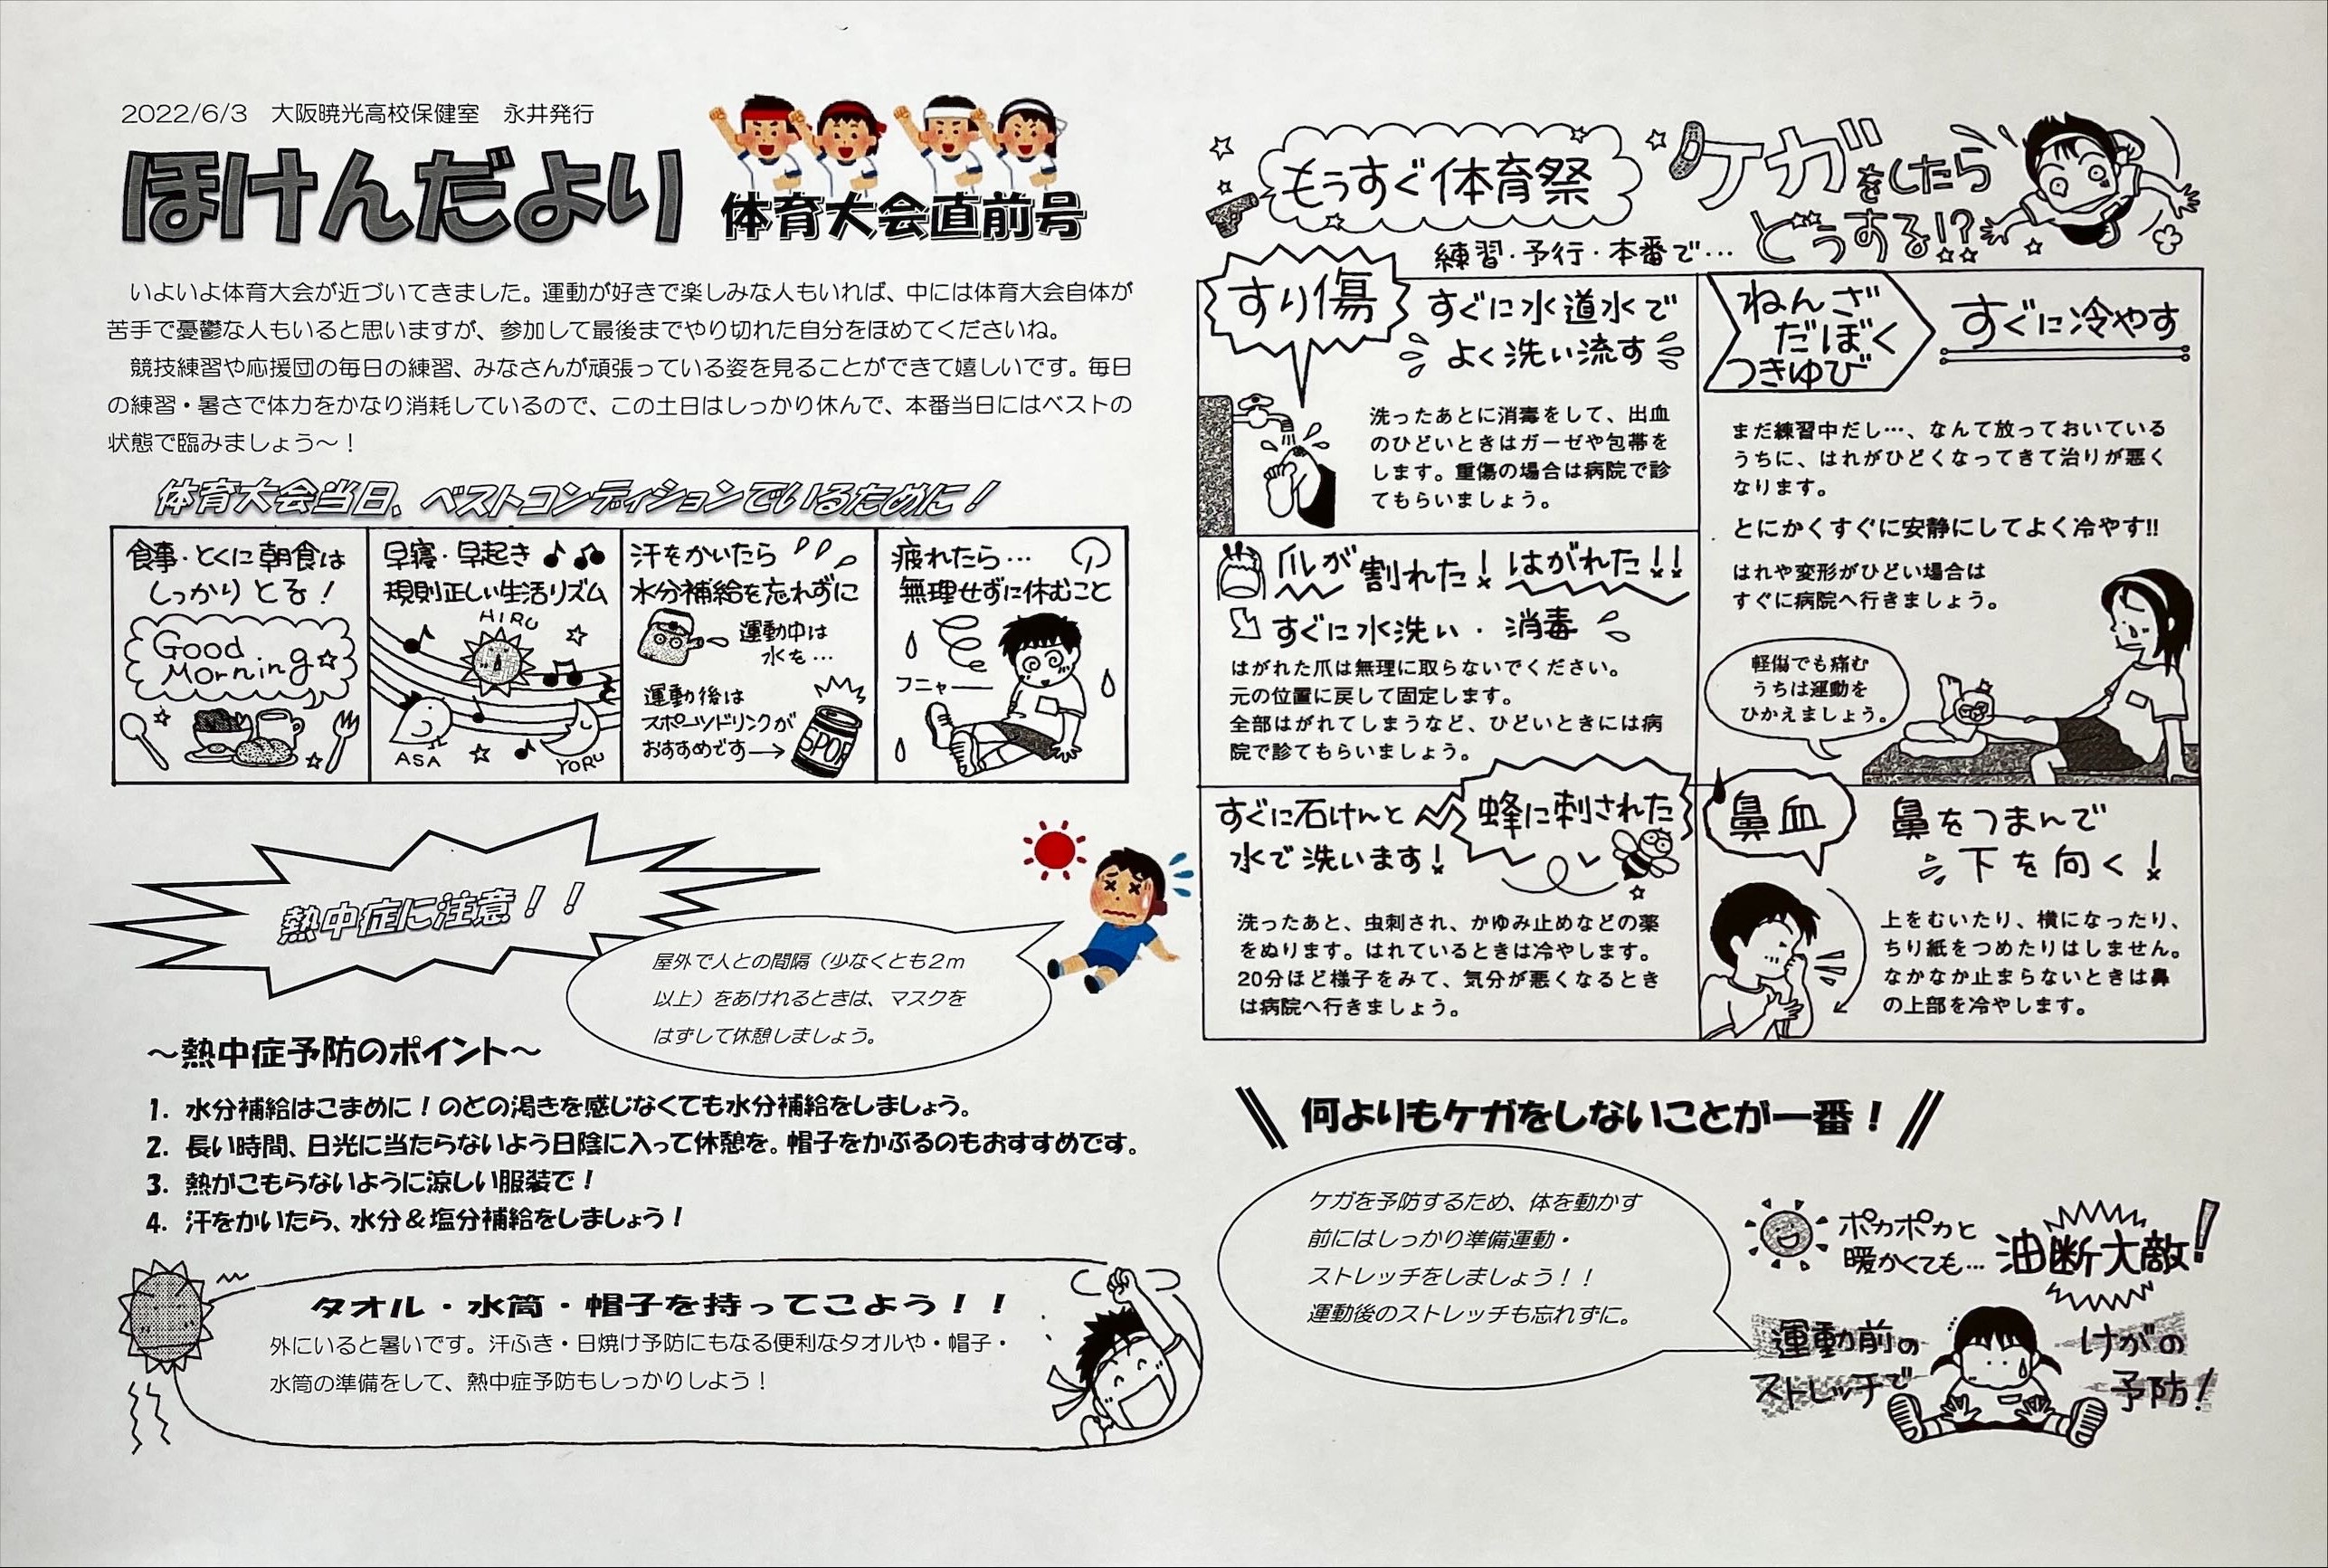 2022/6/3　大阪暁光高校保健室　永井発行
ほけんだより
体育大会直前号
いよいよ体育大会が近づいてきました。運動が好きで楽しみな人もいれば、中には体育大会自体が
苦手で憂鬱な人もいると思いますが、参加して最後までやり切れた自分をほめてくださいね。
競技練習や応援団の毎日の練習、みなさんが頑張っている姿を見ることができて嬉しいです。毎日
の練習・暑さで体力をかなり消耗しているので、この土日はしっかり休んで、本番当日にはベストの
状態で臨みましょう～！
体育大会当日、ベストコンディションでいるために！
食事・とくに朝食は
しっかりとる！
Good
Morning☆
早寝・早起き♪♫
規則正しい生活リズム
HIRU
ASA
YORU
汗をかいたら
水分補給を忘れずに
運動中は
水を…
運動後は
スポーツドリンクが
おすすめです→
SPOR
疲れたら…
無理せずに休むこと
フニャ―
熱中症に注意！！
屋外で人との間隔（少なくとも２ｍ
以上）をあけれるときは、マスクを
はずして休憩しましょう。
～熱中症予防のポイント～
1. 水分補給はこまめに！のどの渇きを感じなくても水分補給をしましょう。
2. 長い時間、日光に当たらないよう日陰に入って休憩を。帽子をかぶるのもおすすめです。
3. 熱がこもらないように涼しい服装で！
4. 汗をかいたら、水分＆塩分補給をしましょう！
タオル・水筒・帽子を持ってこよう！！
外にいると暑いです。汗ふき・日焼け予防にもなる便利なタオルや・帽子・
水筒の準備をして、熱中症予防もしっかりしよう！
もうすぐ体育祭
ケガをしたら
どうする!?
練習・予行・本番で…
すり傷
すぐに水道水で
よく洗い流す
洗ったあとに消毒をして、出血
のひどいときはガーゼや包帯を
します。重傷の場合は病院で診
てもらいましょう。
ねんざ
だぼく
つきゆび
すぐに冷やす
まだ練習中だし…、なんて放っておいている
うちに、はれがひどくなってきて治りが悪く
なります。
とにかくすぐに安静にしてよく冷やす!!
はれや変形がひどい場合は
すぐに病院へ行きましょう。
軽傷でも痛む
うちは運動を
ひかえましょう。
爪が割れた！はがれた!!
すぐに水洗い・消毒
はがれた爪は無理に取らないでください。
元の位置に戻して固定します。
全部はがれてしまうなど、ひどいときには病
院で診てもらいましょう。
蜂に刺された
すぐに石けんと
水で洗います！
洗ったあと、虫刺され、かゆみ止めなどの薬
をぬります。はれているときは冷やします。
20分ほど様子をみて、気分が悪くなるとき
は病院へ行きましょう。
鼻血
鼻をつまんで
下を向く！
上をむいたり、横になったり、
ちり紙をつめたりはしません。
なかなか止まらないときは鼻
の上部を冷やします。
何よりもケガをしないことが一番！
ケガを予防するため、体を動かす
前にはしっかり準備運動・
ストレッチをしましょう！！
運動後のストレッチも忘れずに。
ポカポカと
暖かくても…
油断大敵！
運動前の
ストレッチで
けがの
予防！